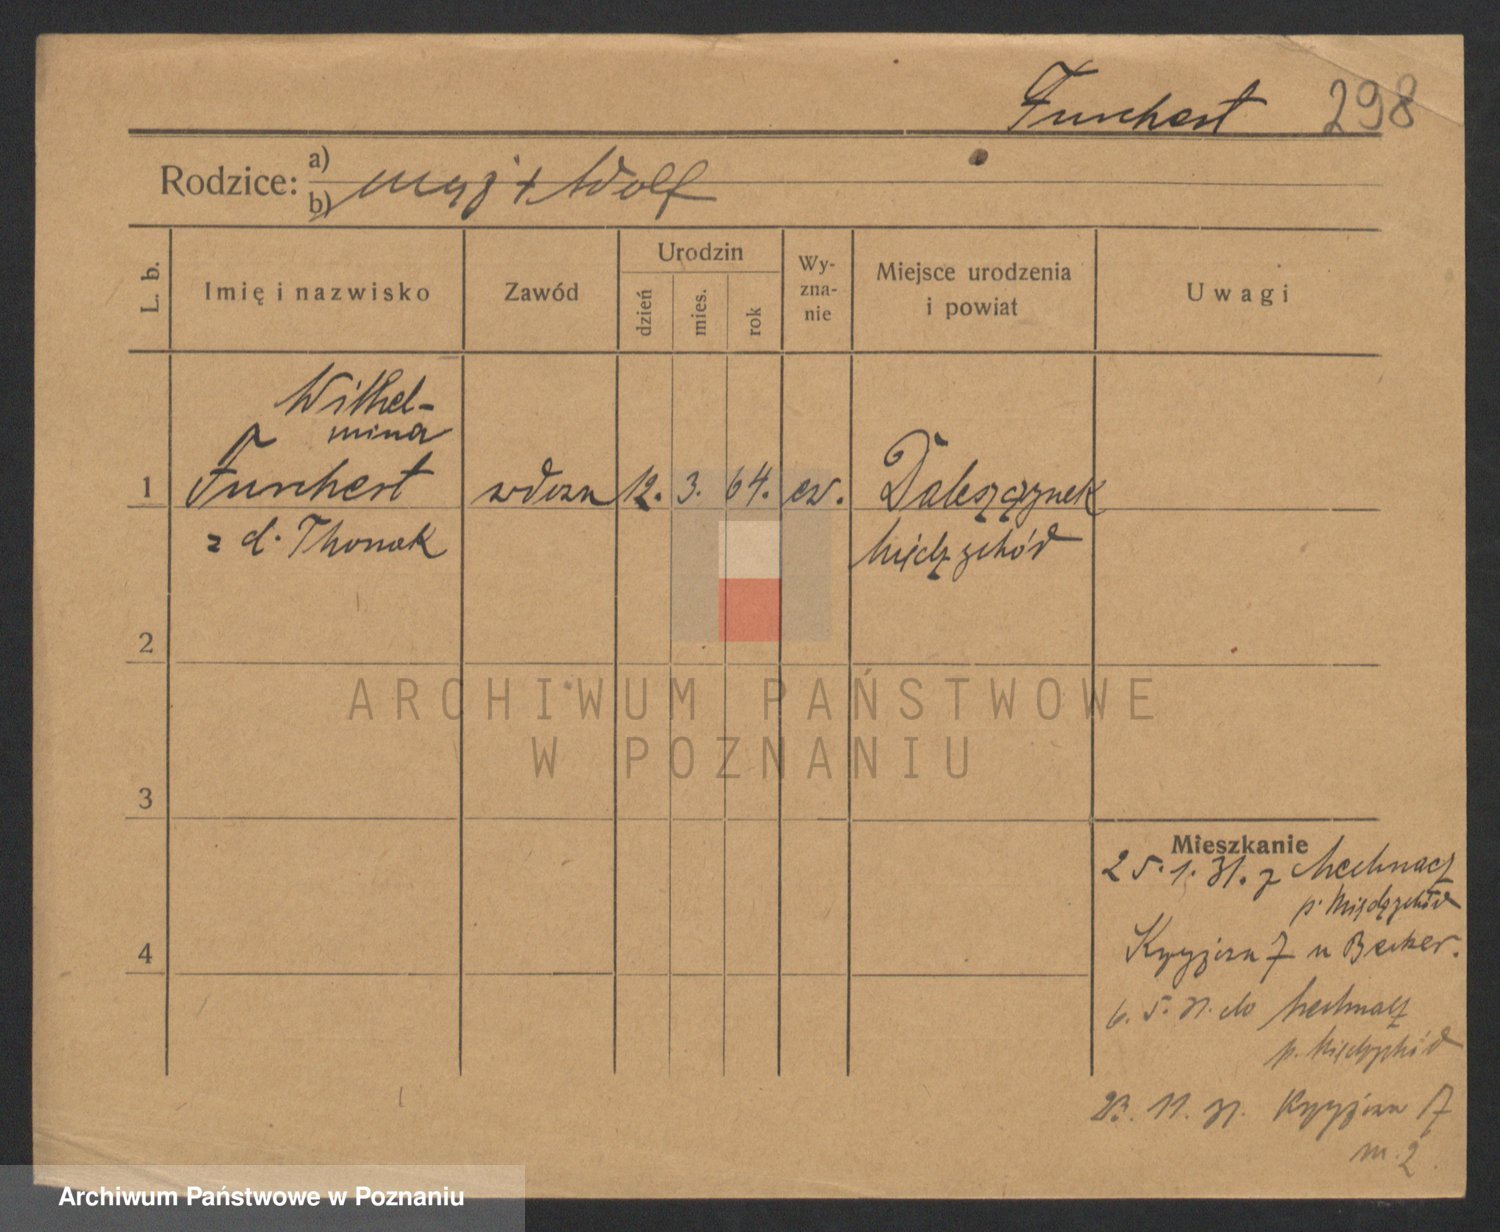 Furchert 298
Rodzice: a)
b) mąż + Adolf
L. b.
Imię i nazwisko
Zawód
Urodzin
dzień
mies.
rok
Wy-
zna-
nie
Miejsce urodzenia
i powiat
Uwagi
Wilhel-
mina
1 Furchert wdowa 12. 3. 64. ew. Daleszynek
z d. Thonak Międzychód
2
3
4
ARCHIWUM PAŃSTWOWE
W POZNANIU
Mieszkanie
25.1.31. z Mechnacz
p. Międzychód
7 u Becker.
6.5.31. do Mechnacz
p. Międzychód
23.11.31. 17
m. 2.
Archiwum Państwowe w Poznaniu